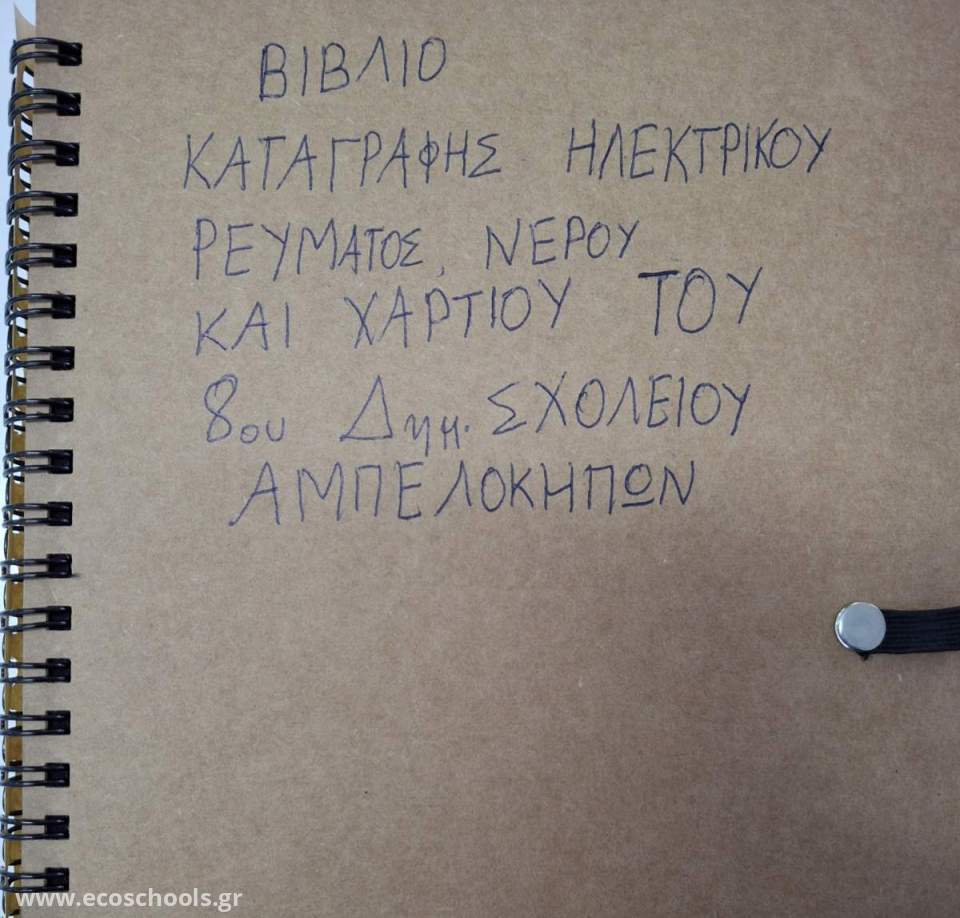 ΒΙΒΛΙΟ
ΚΑΤΑΓΡΑΦΗΣ ΗΛΕΚΤΡΙΚΟΥ
ΡΕΥΜΑΤΟΣ, ΝΕΡΟΥ
ΚΑΙ ΧΑΡΤΙΟΥ ΤΟΥ
8ου Δημ. ΣΧΟΛΕΙΟΥ
ΑΜΠΕΛΟΚΗΠΩΝ
www.ecoschools.gr